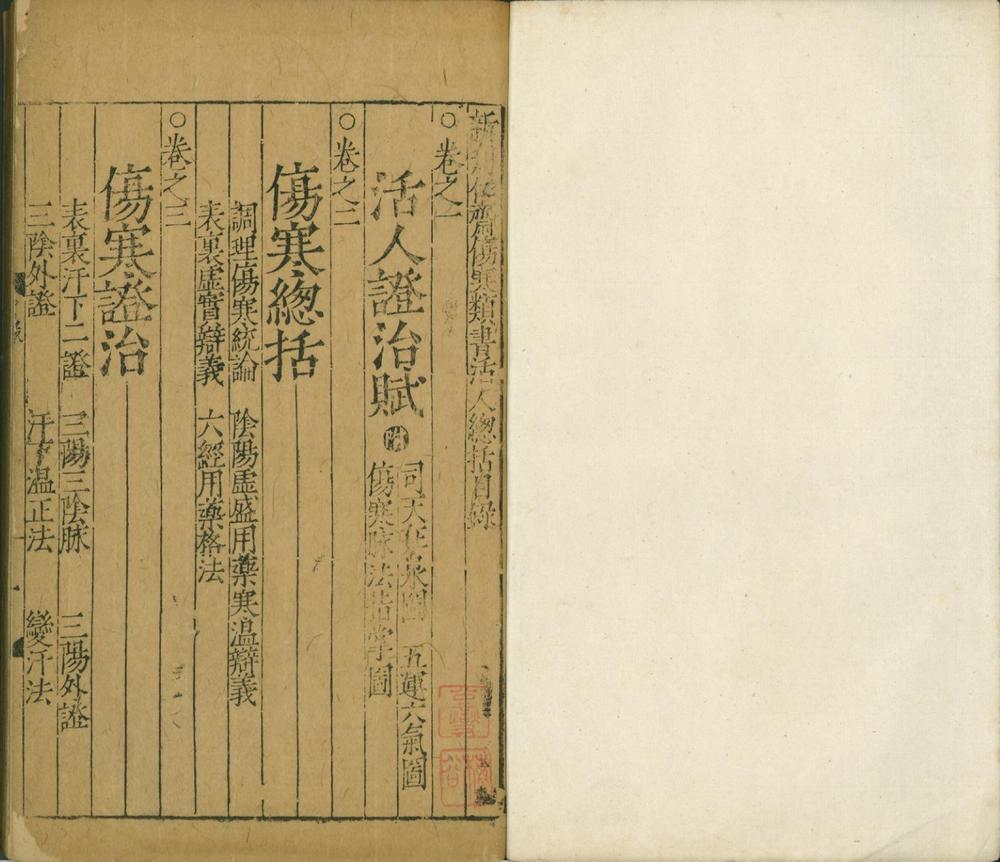 新刊仁齋傷寒類書活人總括目錄
○卷之一
活人證治賦 附 司天在泉圖 五運六氣圖
傷寒脉法指掌圖
○卷之二
傷寒總括
調理傷寒統論 陰陽虛盛用藥寒温辯義
表裏虛實辯義 六經用藥格法
○卷之三
傷寒證治
表裏汗下二證 三陽三陰脉 三陽外證
三陰外證 汗下温正法 變汗法